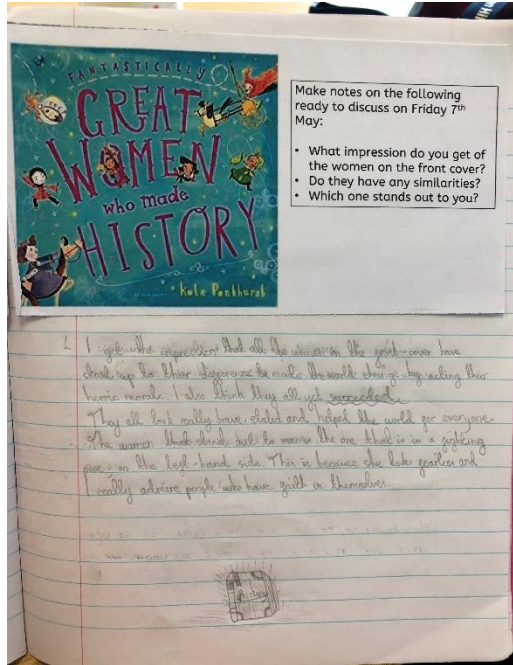 FANTASTICALLY
GREAT
WOMEN
who made
HISTORY
Kate Pankhurst
Make notes on the following
ready to discuss on Friday 7th
May:
• What impression do you get of
the women on the front cover?
• Do they have any similarities?
• Which one stands out to you?
I get the impression that all the women on the front-cover have
stood up to thier difference be made the world change by
heroic morals. I also think they all get succeeded.
They all look really brave, elated and helped the world for everyone.
The women that stands out to me is the one that is in a fighting
pose on the left-hand side. This is because she looks fearless and
I really admire people who have faith in themselves.
History